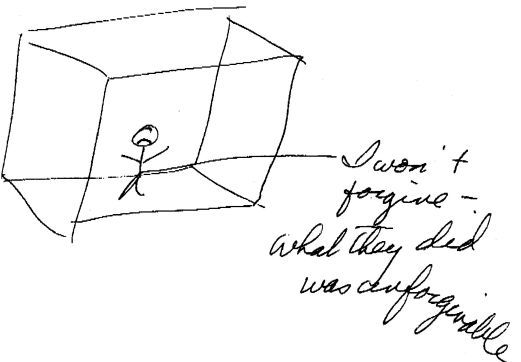 I won't
forgive -
what they did
was unforgivable